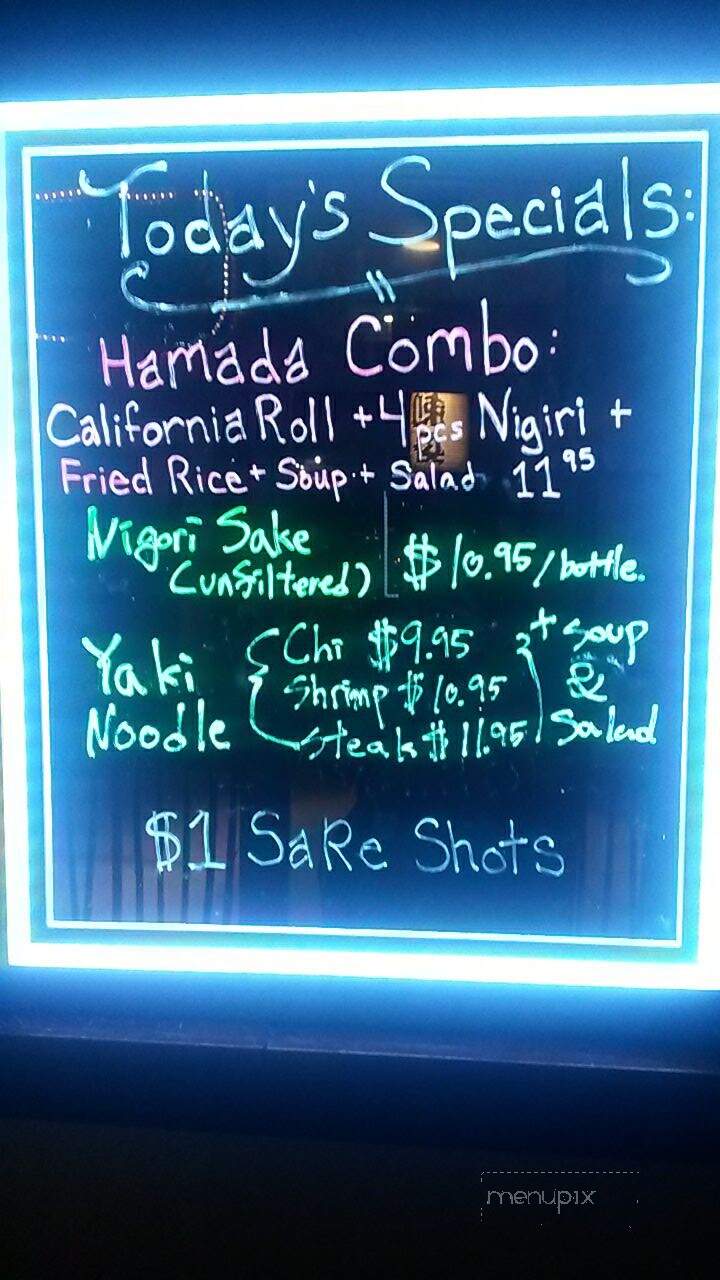 Today's Specials:
Hamada Combo:
California Roll + 4 pcs Nigiri +
Fried Rice + Soup + Salad 11 95
Nigori Sake
(unfiltered) $10.95/bottle.
Yaki
Noodle
Chi $9.95
Shrimp $10.95
Steak $11.95
+ Soup
&
Salad
$1 SaRe Shots
menupix